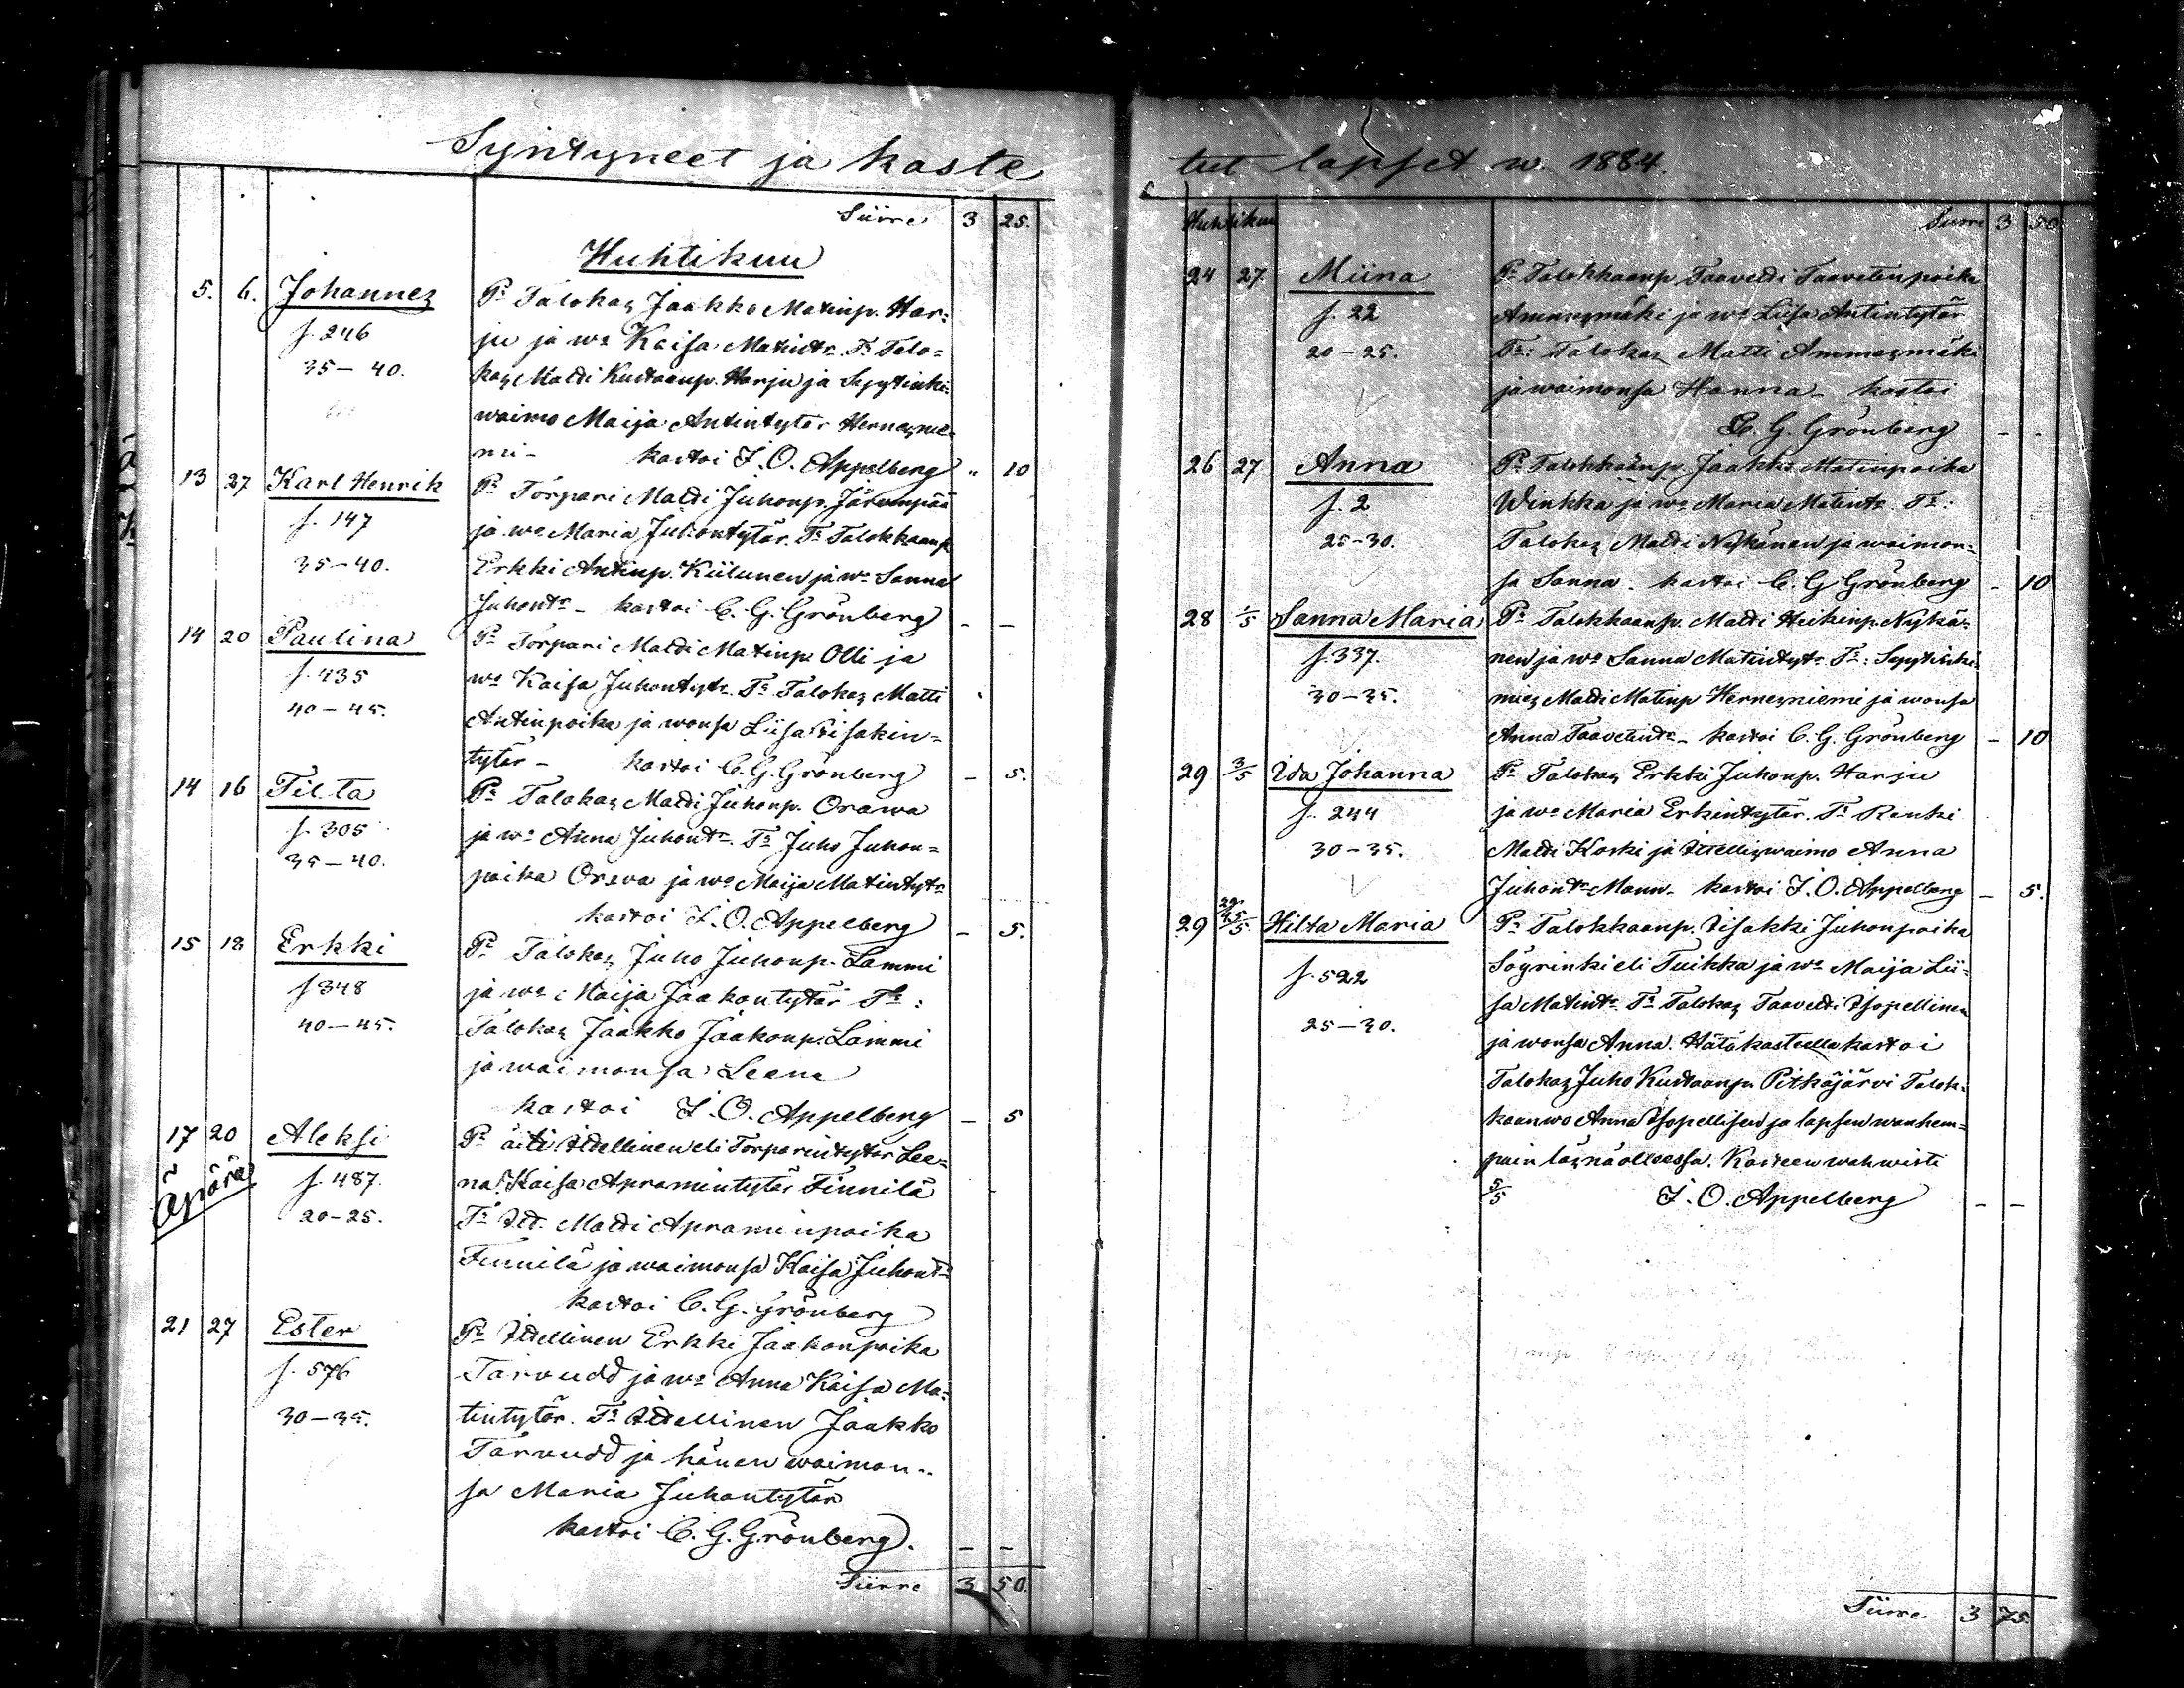 Syntyneet ja kaste
Siirre 3 25.
Huhtikuu
5. 6. Johannes Pr Talokas Jaakko Matinp. Har=
f. 246 ju ja wo Kaisa Matintr. Tr Talo=
35 – 40. kas Matti Kustaanp. Harju ja Sepytinki=
waimo Maija Antintytär Hernesnie=
mi – kastoi I. O. Appelberg " 10
13 27 Karl Henrik Pr Torpari Matti Juhonp. Järvenpää
f. 147 ja wo Maria Juhontytär. Tr Talokkaanp
35 – 40. Erkki Antinp. Kiilunen ja wo Sanna
Juhontr – kastoi C. G. Grönberg – –
14 20 Paulina Pr Torpari Matti Matinp. Olli ja
f. 435 wo Kaisa Juhontytr. Tr Talokas Matti
40 – 45. Antinpoika ja wonsa Liisa Iisakin=
tytär – kastoi C. G. Grönberg – 5.
14 16 Tilta Pr Talokas Matti Juhonp. Orawa
f. 305 ja wo Anna Juhontr. Tr Juho Juhon=
35 – 40. poika Orava ja wo Maija Matintytr
kastoi I. O. Appelberg – 5.
15 18 Erkki Pr Talokas Juho Juhonp. Lammi
f 348 ja wo Maija Jaakontytär Tr:
40 – 45. Talokas Jaakko Jaakonp. Lammi
ja waimonsa Leena
kastoi I. O. Appelberg – 5
17 20 Aleksi Pr äiti Itellinen eli Torparintytär Lee=
Äpärä f. 487. na Kaisa Apramintytär Finnilä
20 – 25. Tr It. Matti Apraminpoika
Finnilä ja waimonsa Kaisa Juhontr
kastoi C. G. Grönberg
21 27 Ester Pr Itellinen Erkki Jaakonpoika
f. 576 Tarvudd ja wo Anna Kaisa Ma=
30 – 35. tintytär. Tr Itellinen Jaakko
Tarvudd ja hänen waimon=
sa Maria Juhontytär
kastoi C. G. Grönberg. – –
Siirre 3 50.
tut lapset w. 1884.
Huhtikuu Siirre 3 50
24 27 Miina Pr Talokkaanp Taavetti Taavetinpoika
f. 22 Ammesmäki ja wo Liisa Antintytär
20 – 25. Tr: Talokas Matti Ammesmäki
ja waimonsa Hanna – kastoi
C. G. Grönberg – –
26 27 Anna Pr Talokkaanp. Jaakko Matinpoika
f. 2 Winkka ja wo Maria Matintr. Tr:
25 – 30. Talokas Matti Nykänen ja waimon=
sa Sanna. kastoi C. G Grönberg – 10
28 1/5 Sanna Maria Pr Talokkaanp. Matti Heikinp. Nykä=
f. 337. nen ja wo Sanna Matintytr Tr: Sepytinki=
30 – 35. mies Matti Matinp Hernesniemi ja wonsa
Anna Taavetintr – kastoi C. G. Grönberg – 10
29 3/5 Ida Johanna Pr Talokas Erkki Juhonp. Harju
f. 244 ja wo Maria Erkintytär. Tr Renki
30 – 35. Matti Koski ja Itelliswaimo Anna
Juhontr Mann – kastoi I. O. Appelberg – 5.
29 29/4 5/5 Hilta Maria Pr Talokkaanp. Iisakki Juhonpoika
f. 522 Söyrinki eli Tuikka ja wo Maija Lii=
25 – 30. sa Matintr. Tr Talokas Taavetti Isopellinen
ja wonsa Anna. Hätäkasteella kastoi
Talokas Juho Kustaanp. Pitkäjärvi Talok=
kaanwo Anna Isopellisen ja lapsen wanhem=
pain läsnäollessa. Kasteen wahwisti
5/5 I. O. Appelberg – –
Siirre 3 75.